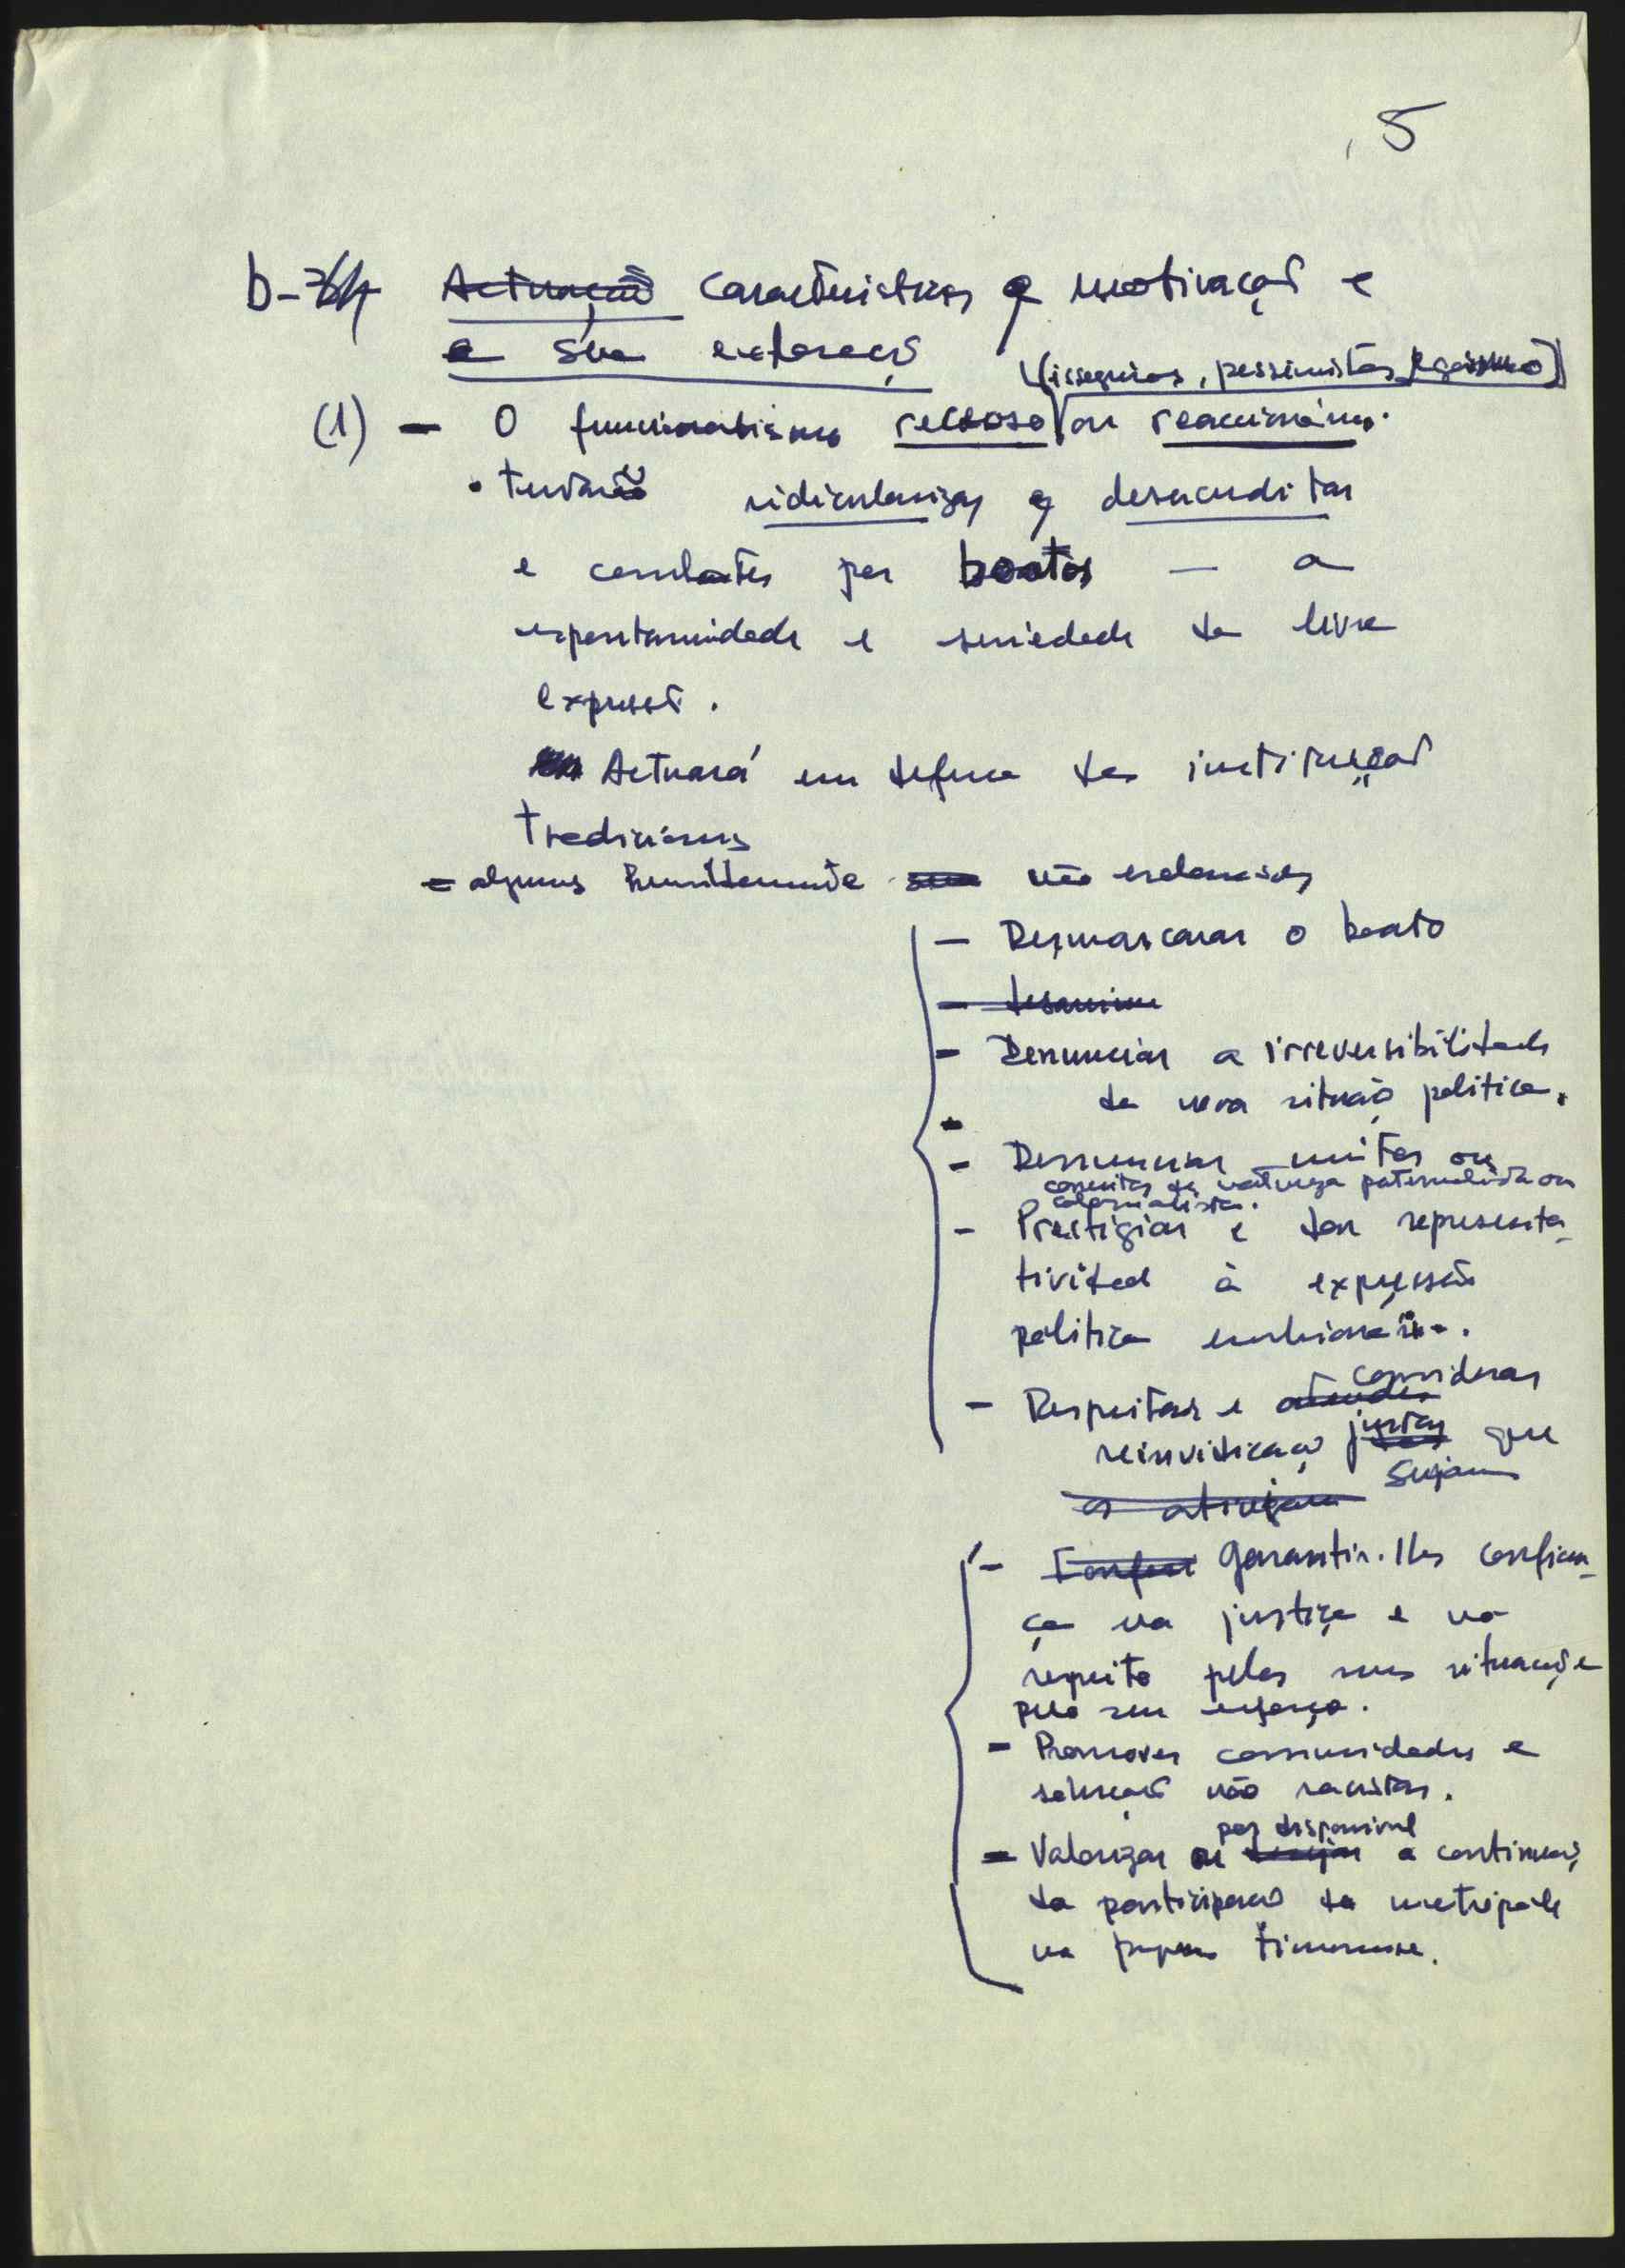 5
b- Actuação características e motivação e
a sua exploração
(inseguros, pessimistas, egoismo)
(1) - O funcionalismo receoso ou reaccionário.
• tentarão ridicularizar e desacreditar
e combates por boatos — a
espontaneidade e seriedade da livre
expressão.
Actuará em defesa das instituições
tradicionais
- alguns não esclarecidos
- Desmascarar o boato
- desanimo
- Denunciar a irreversibilidade
da nova situação politica.
- Denunciar mitos ou
conceitos de natureza paternalista ou
colonialista.
- Prestigiar e dar representa-
tividade à expressão
politica embrionária.
considerar
- Respeitar e atender
reinvidicação justas que
surjam
as atinjam
- Garantir-lhes confian-
ça na justiça e no
respeito pelas suas situações e
pelo seu esforço.
- Promover comunidades e
soluções não racistas.
por disponivel
- Valorizar ou desejar a continuação
da participação da metrópole
na timorense.